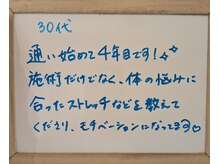 30代
通い始めて4年目です!
施術だけでなく、体の悩みに
合ったストレッチなどを教えて
くださり、モチベーションになってます♡